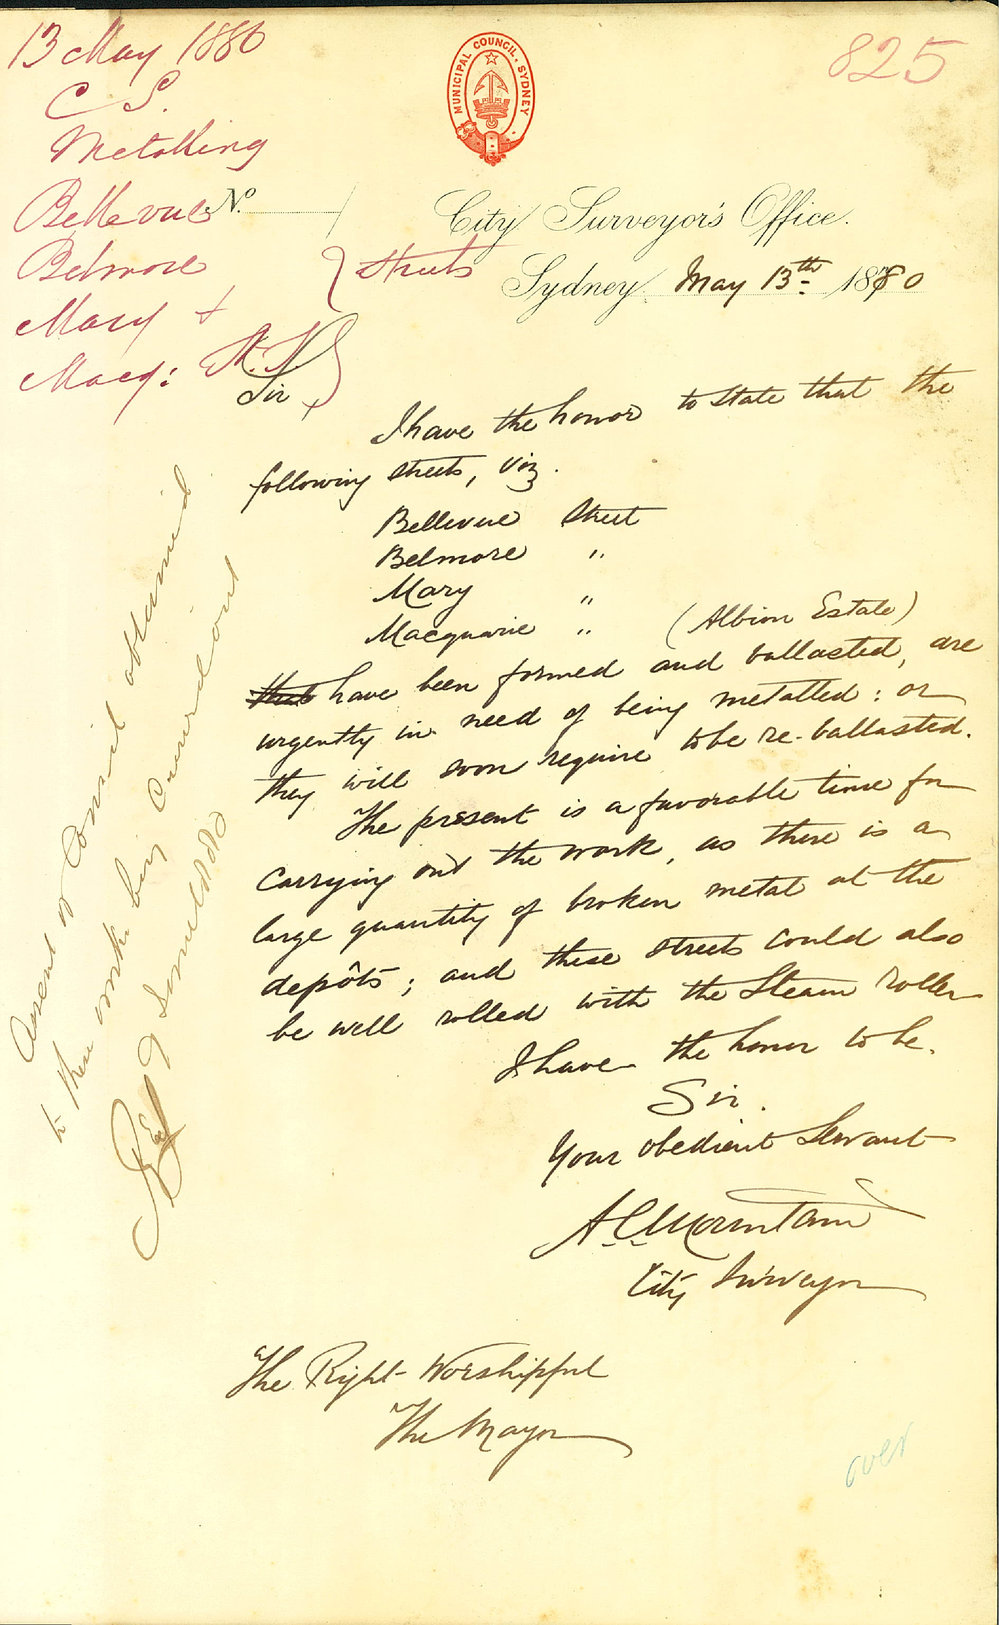 13 May 1880
C S.
Metalling
Bellevue
Belmore
Mary +
Macq: St. N
} Streets
825
MUNICIPAL COUNCIL. SYDNEY.
No.
City Surveyor's Office.
Sydney May 13th 1880
Sir,
I have the honor to state that the
following streets, viz.
Bellevue Street
Belmore "
Mary "
Macquarie " (Albion Estate)
that have been formed and ballasted, are
urgently in need of being metalled: or
they will soon require to be re-ballasted.
The present is a favorable time for
carrying out the work, as there is a
large quantity of broken metal at the
depôts; and these streets could also
be well rolled with the Steam Roller
I have the honor to be.
Sir.
Your obedient Servant
A.C. Mountain
City Surveyor
The Right Worshipful
The Mayor
over
Assent of Council obtained
to these works being carried out